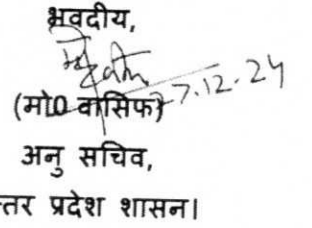 भवदीय,
27.12.24
(मो0 वासिफ)
अनु सचिव,
त्तर प्रदेश शासन।